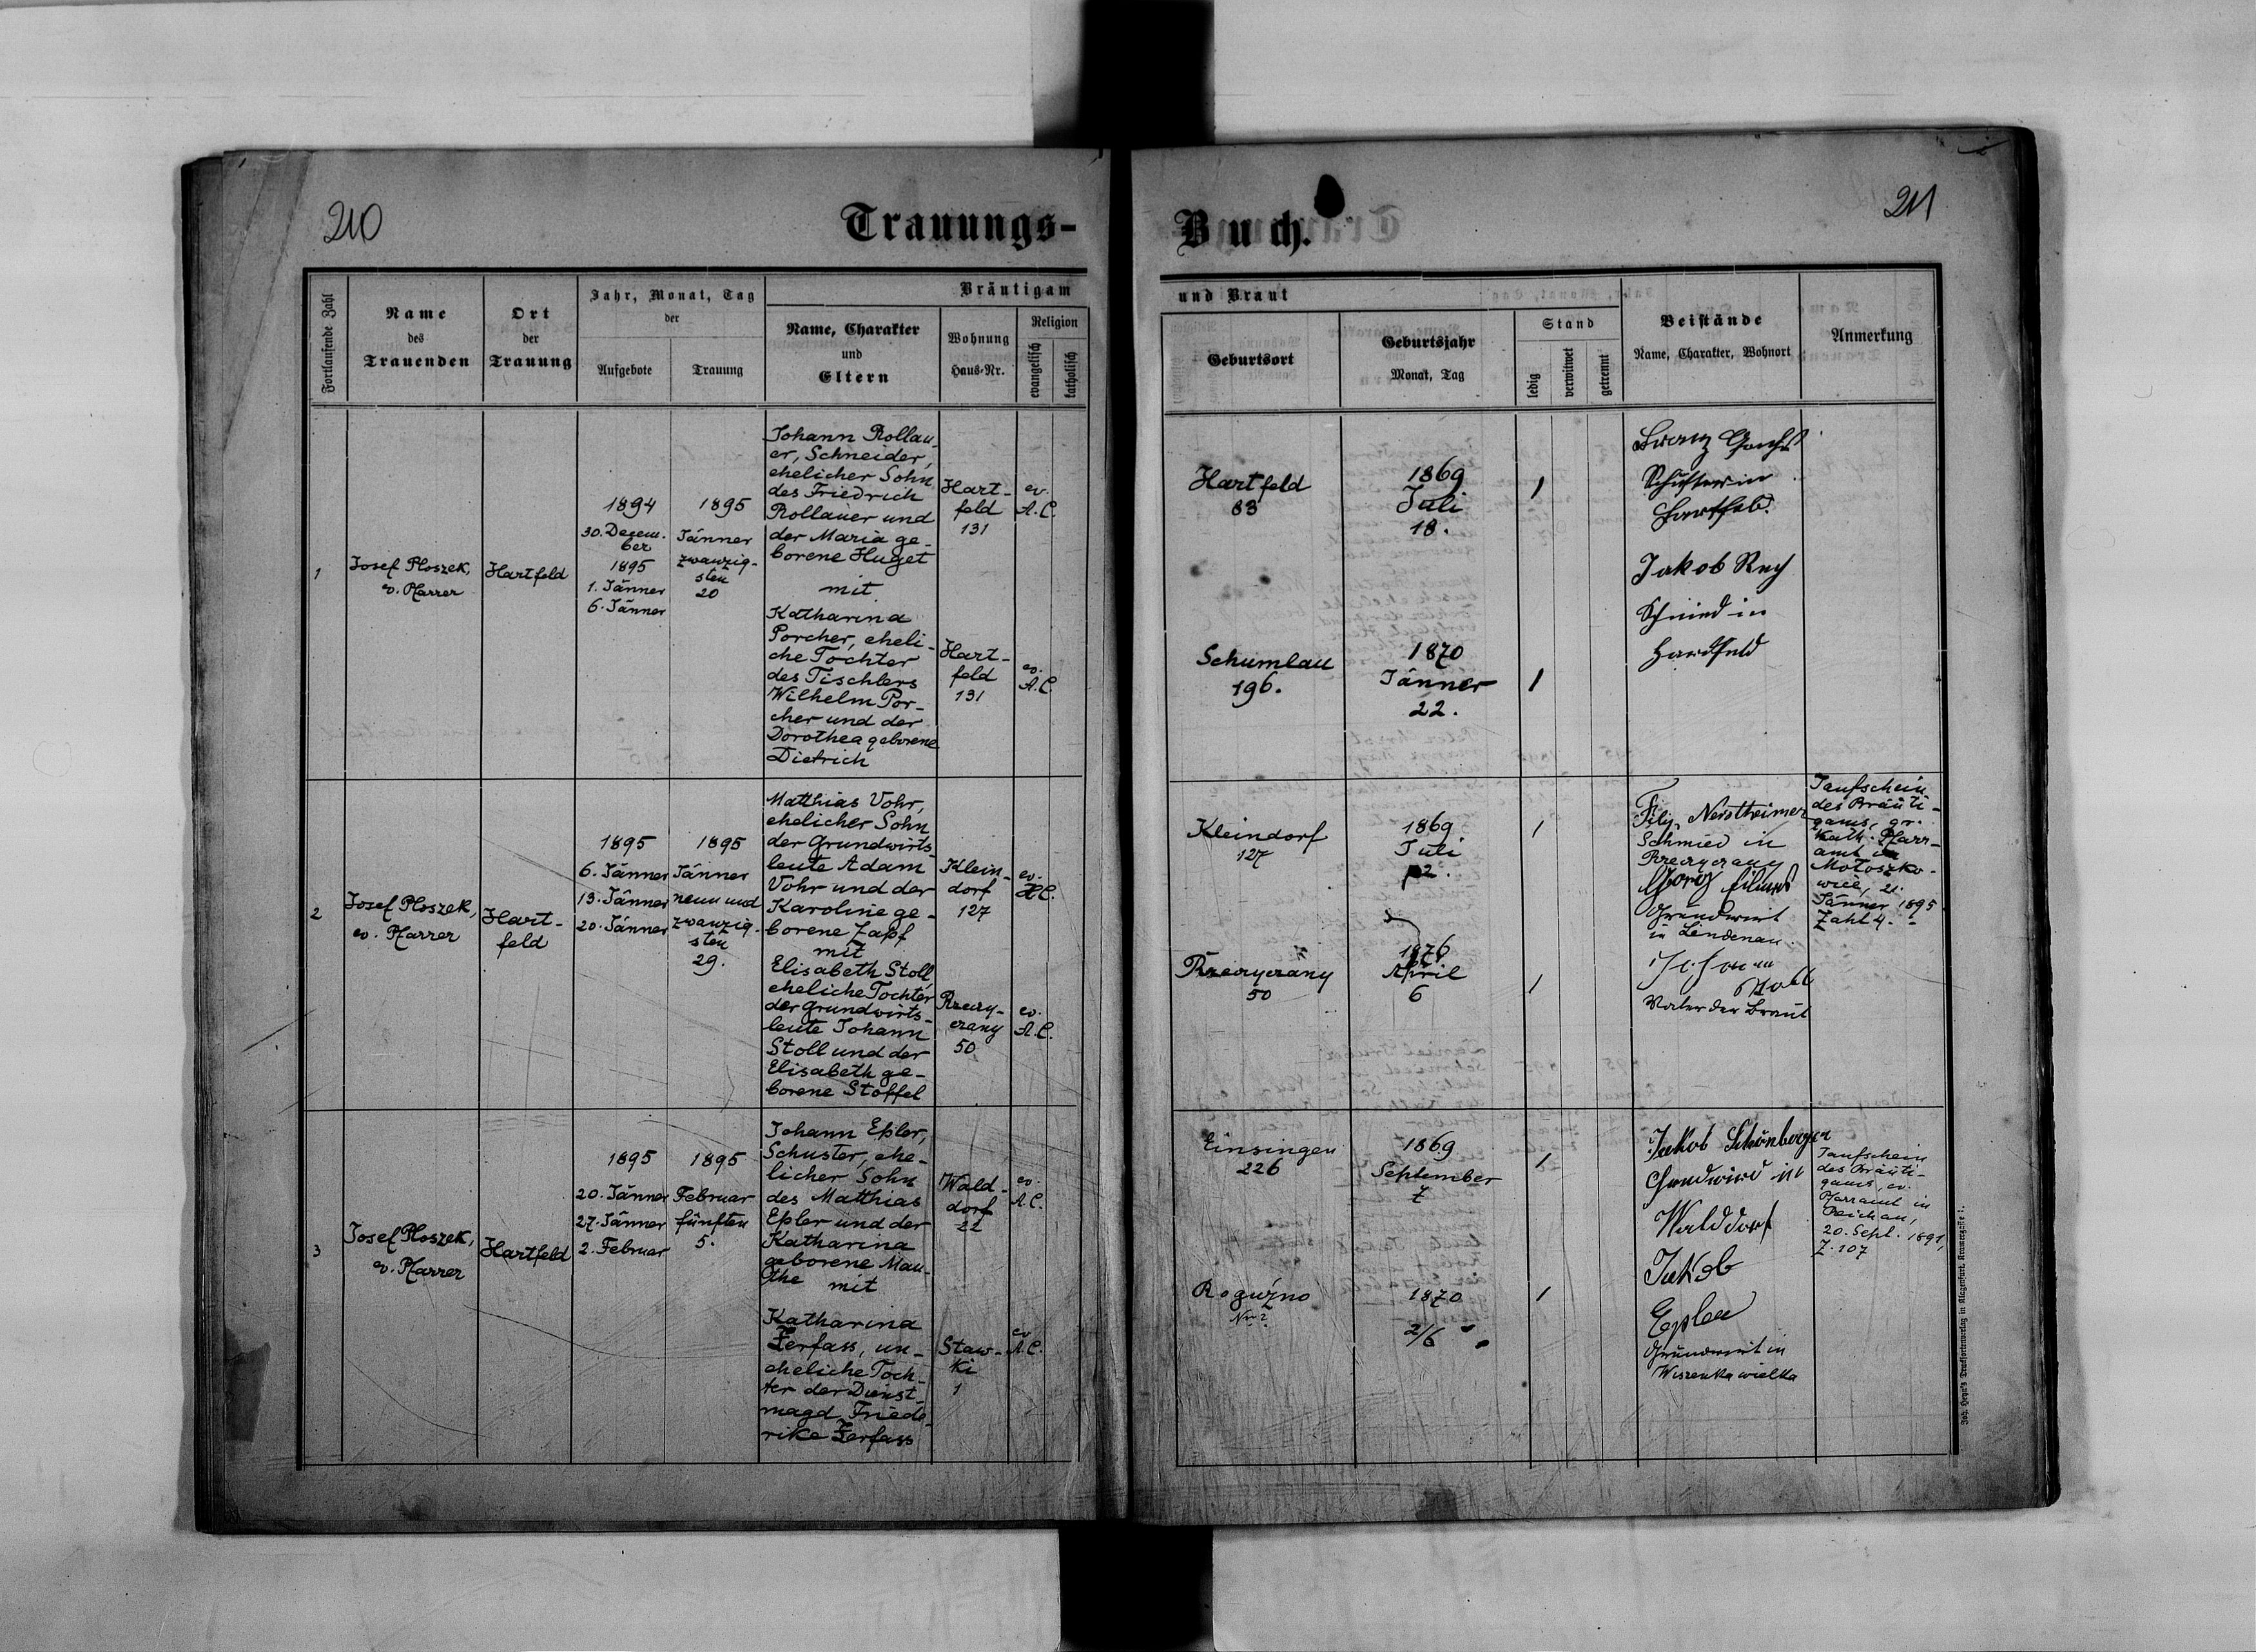 210
Trauungs-
Fortlaufende Zahl
Name
des
Trauenden
Ort
der
Trauung
Jahr, Monat, Tag
der
Aufgebote
Trauung
Bräutigam
Name, Charakter
und
Eltern
Wohnung
Haus-Nr.
Religion
evangelisch
katholisch
1
Josef Ploszek,
ev. Pfarrer
Hartfeld
1894
30. Decem-
ber
1895
1. Jänner
6. Jänner
1895
Jänner
zwanzig-
sten
20
Johann Rollau-
er, Schneider,
ehelicher Sohn
des Friedrich
Rollauer und
der Maria ge-
borene Huget
mit
Katharina
Porcher, eheli-
che Tochter
des Tischlers
Wilhelm Por-
cher und der
Dorothea geborene
Dietrich
Hart-
feld
131
ev.
A.C.
Hart-
feld
131
ev.
A.C.
2
Josef Ploszek,
ev. Pfarrer
Hart-
feld
1895
6. Jänner
13. Jänner
20. Jänner
1895
Jänner
neun und
zwanzig-
sten
29.
Matthias Vohr,
ehelicher Sohn
der Grundwirts-
leute Adam
Vohr und der
Karoline ge-
borene Zapf
mit
Elisabeth Stoll,
eheliche Tochter
der Grundwirts-
leute Johann
Stoll und der
Elisabeth ge-
borene Stoffel
Klein-
dorf
127
ev.
H.C.
Rzeczy-
czany
50
ev.
A.C.
3
Josef Ploszek,
ev. Pfarrer
Hartfeld
1895
20. Jänner
27. Jänner
2. Februar
1895
Februar
fünften
5.
Johann Epler,
Schuster, ehe-
licher Sohn
des Matthias
Epler und der
Katharina
geborene Mau-
the mit
Katharina
Zerfass, un-
eheliche Toch-
ter der Dienst-
magd Friede-
rike Zerfass
Wald-
dorf
22
ev.
A.C.
Staw-
ki
1
ev
A.C.
211
Buch.
und Braut
Geburtsort
Geburtsjahr
Monat, Tag
Stand
ledig
verwitwet
getrennt
Beistände
Name, Charakter, Wohnort
Anmerkung
Hartfeld
83
1869
Juli
18.
1
Franz
Schuster in
Hartfeld.
Jakob
Schmied in
Hardfeld
Schumlau
196.
1870
Jänner
22.
1
Kleindorf
127
1869
Juli
12.
1
Schmied in
Rzeczyczany
Georg
Grundwirt
in Lindenau.
Johann
Stoll
Vater der Braut
Taufschein
des Bräuti-
gams, gr.
kath. Pfarr-
amt in
Motoszko-
wice, 21.
Jänner 1895
Zahl 4.
Rzeczyczany
50
1876
April
6
1
Einsingen
226
1869
September
7
1
Jakob Schönberger
Grundwird in
Walddorf
Jakob
Epler
Grundwirt in
Wiszenka wielka
Taufschein
des Bräuti-
gams, ev.
Pfarramt in
Reichau,
20. Sept. 1891,
Z. 107
Roguźno
Nr. 2
1870
2/6
1
Joh. Heyn's Drucksortenverlag in Klagenfurt, Kramergasse 1.